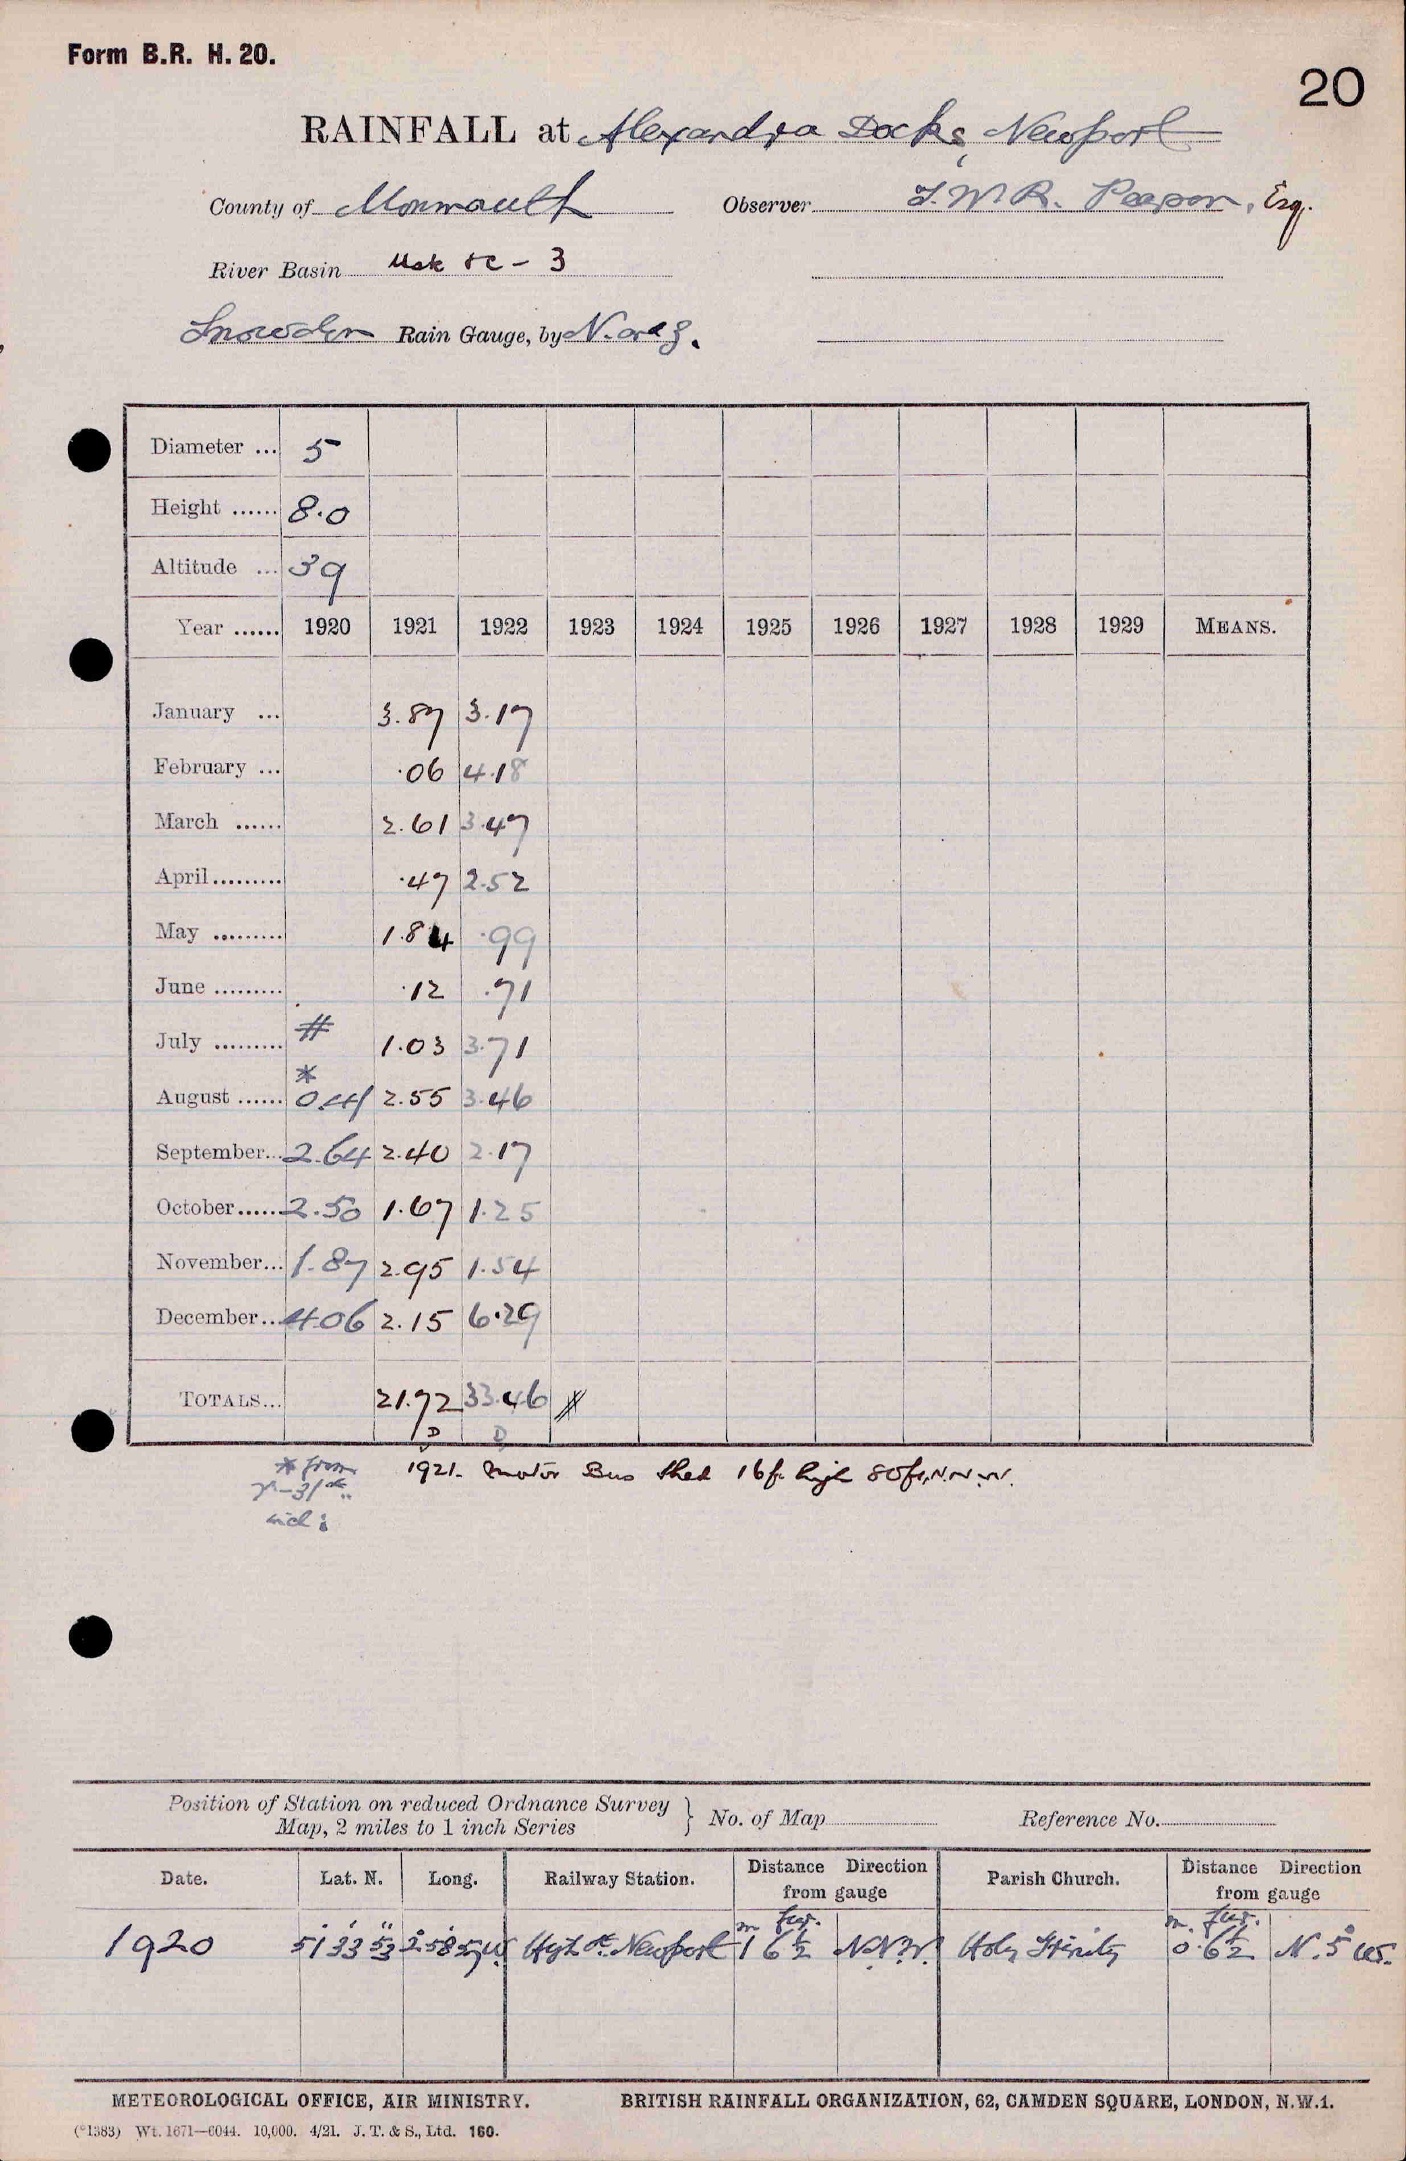 Form B.R. H. 20.
20
RAINFALL at Alexandra Docks, Newport
County of Monmouth Observer T. W. R. Pearson, Esq.
River Basin Usk &c - 3
Snowdon Rain Gauge, by N. and Z.
Diameter ... 5
Height ...... 8.0
Altitude ... 39
Year ...... 1920 1921 1922 1923 1924 1925 1926 1927 1928 1929 MEANS.
January ... 3.87 3.17
February ... .06 4.18
March ...... 2.61 3.47
April ......... .47 2.52
May ......... 1.84 .99
June ......... .12 .71
July ......... # 1.03 3.71
August ...... * 0.41 2.55 3.46
September... 2.64 2.40 2.17
October ...... 2.50 1.67 1.25
November... 1.87 2.95 1.54
December ... 4.06 2.15 6.29
TOTALS... 21.72 33.46 #
D D
* from 1921. Motor Bus shed 16 ft. high 80 ft. N.N.W.
7th-31st
incl:
Position of Station on reduced Ordnance Survey Map, 2 miles to 1 inch Series } No. of Map Reference No.
Date. Lat. N. Long. Railway Station. Distance Direction from gauge Parish Church. Distance Direction from gauge
1920 51° 33' 53" 2° 58' 59" W. High St. Newport 1 m 6½ fur. N.N.W. Holy Trinity 0 m. 6½ fur. N. 5° W.
METEOROLOGICAL OFFICE, AIR MINISTRY. BRITISH RAINFALL ORGANIZATION, 62, CAMDEN SQUARE, LONDON, N.W.1.
(*1383) Wt. 1671—6044. 10,000. 4/21. J. T. & S., Ltd. 160.